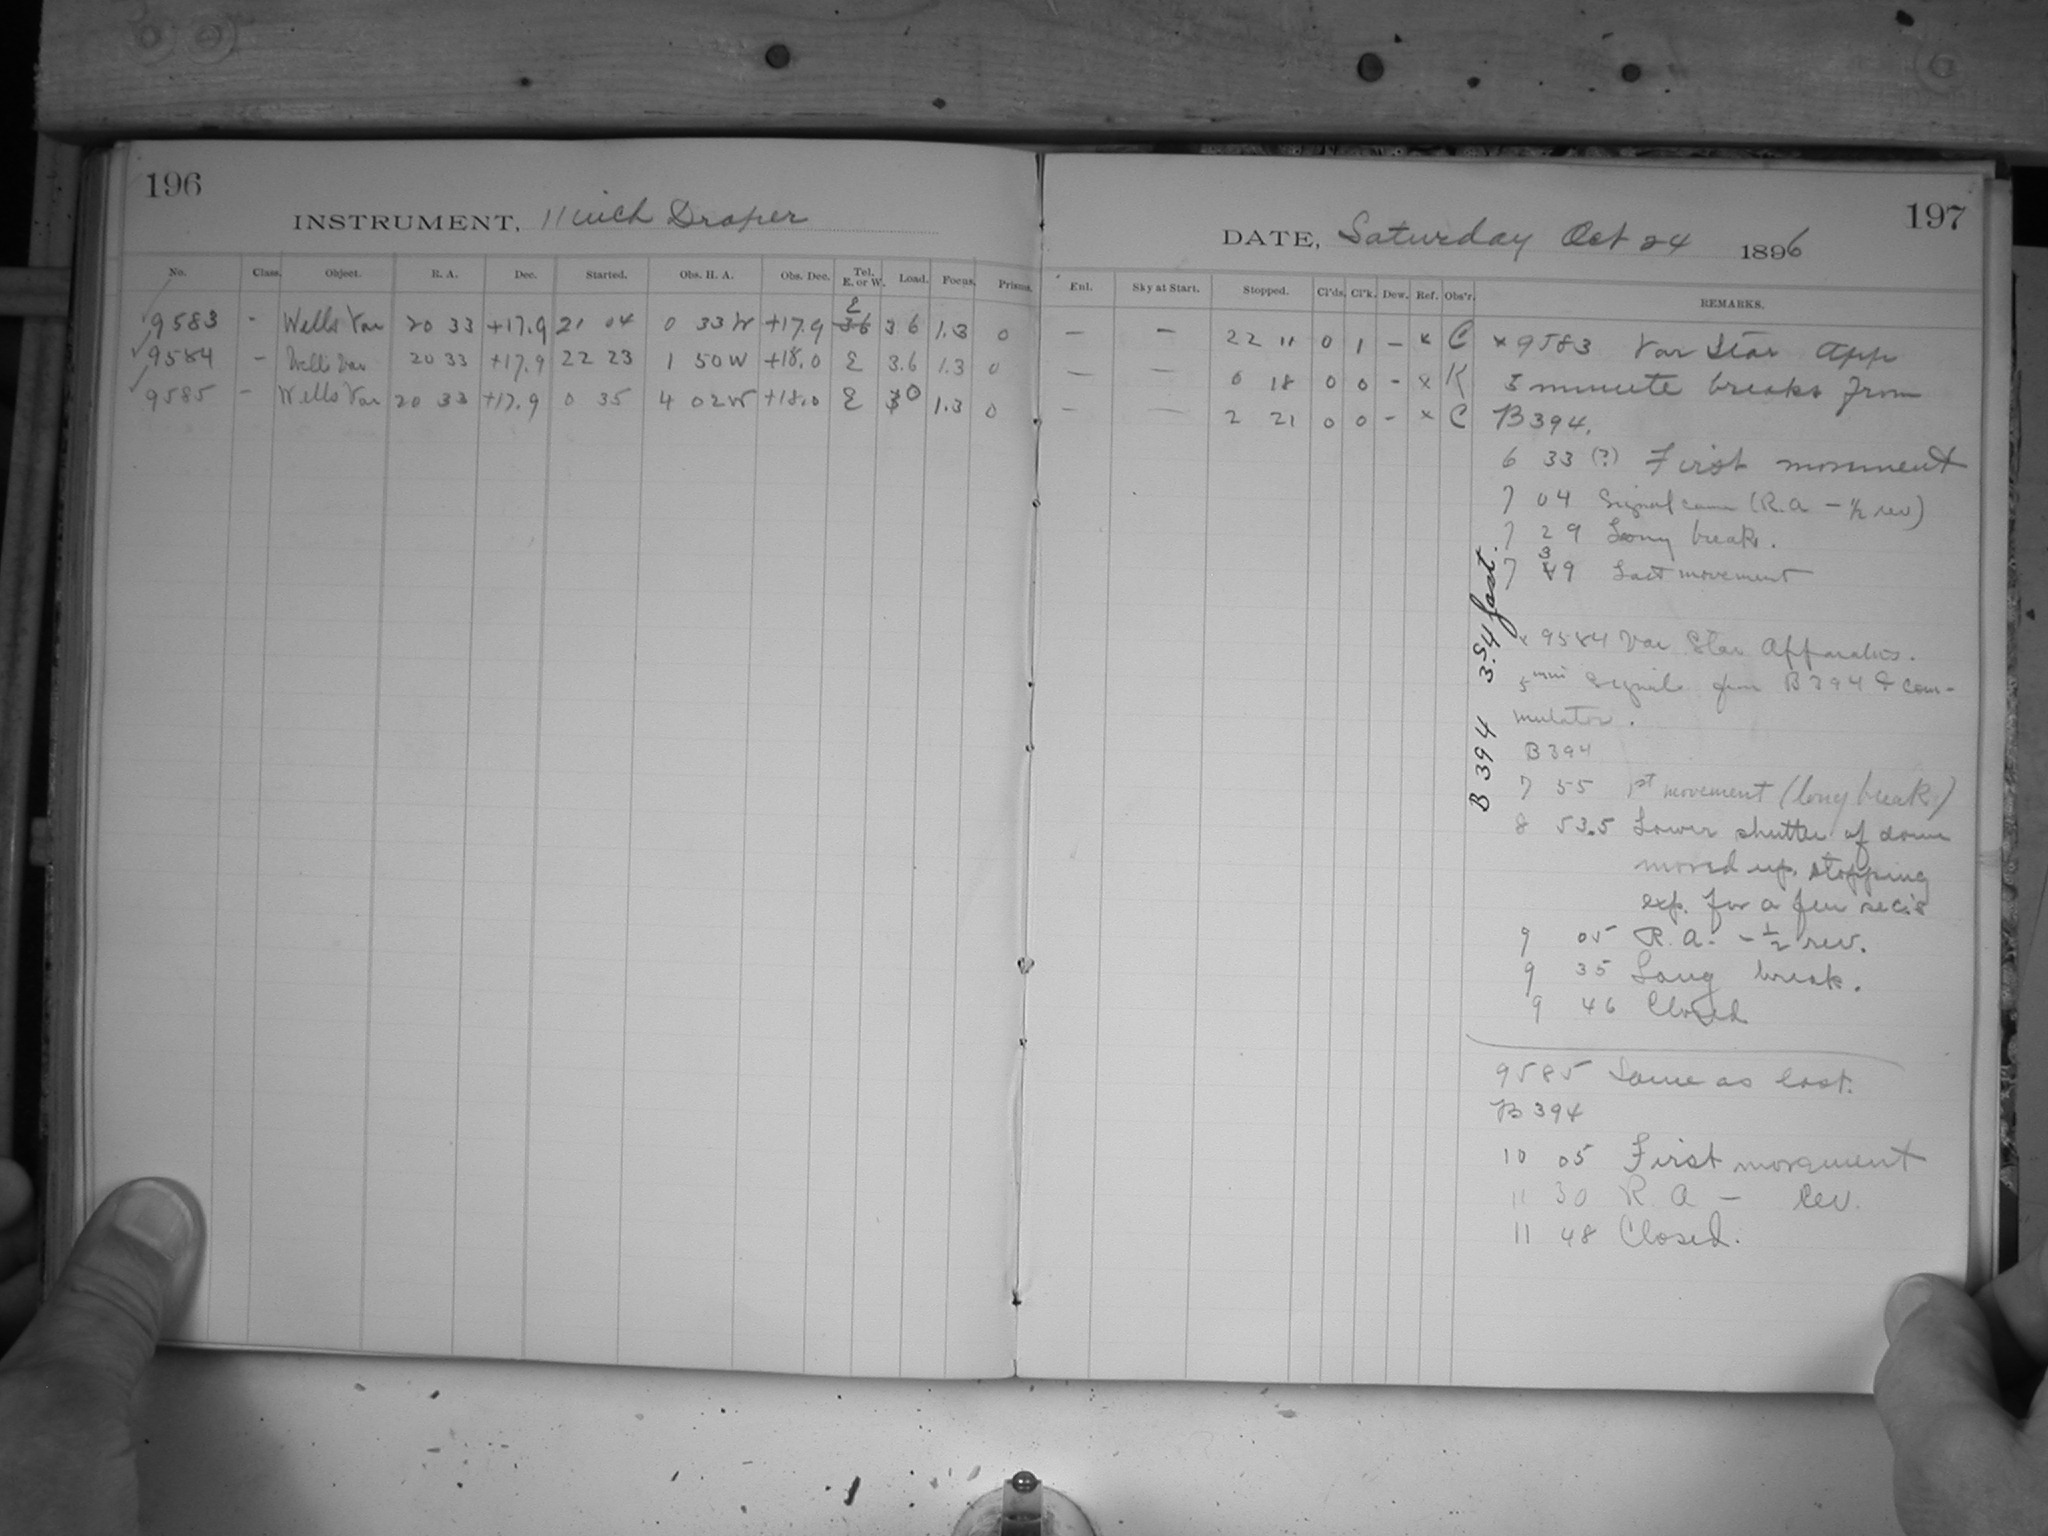 196
INSTRUMENT, 11 inch Draper
No. Class. Object. R. A. Dec. Started. Obs. H. A. Obs. Dec. Tel. E. or W. Load. Focus. Prisms.
9583 - Wells Var 20 33 +17.9 21 04 0 33 W +17.9 E 36 3.6 1.3 0
9584 - Wells Var 20 33 +17.9 22 23 1 50 W +18.0 E 3.6 1.3 0
9585 - Wells Var 20 33 +17.9 0 35 4 02 W +18.0 E 30 1.3 0
197
DATE, Saturday Oct 24 1896
Enl. Sky at Start. Stopped. Cl'ds. Cl'k. Dew. Ref. Obs'r. REMARKS.
— — 22 11 0 1 - x C
— — 0 18 0 0 - x K
— — 2 21 0 0 - x C
x 9583 Var Star App
5 minute breaks from
B 394.
6 33 (?) First movement
7 04 Signal came (R.A - ½ rev)
7 29 Long break.
7 39 Last movement
B 394 3.S4 fast.
x 9584 Var Star Apparatus.
5 min signals from B 394 & com-
mutator.
B 394
7 55 1st movement (long break)
8 53.5 Lower shutter of dome
moved up, stopping
exp. for a few sec's
9 05 R. A. - ½ rev.
9 35 Long break.
9 46 Closed
9585 Same as last.
B 394
10 05 First movement
11 30 R. A - rev.
11 48 Closed.